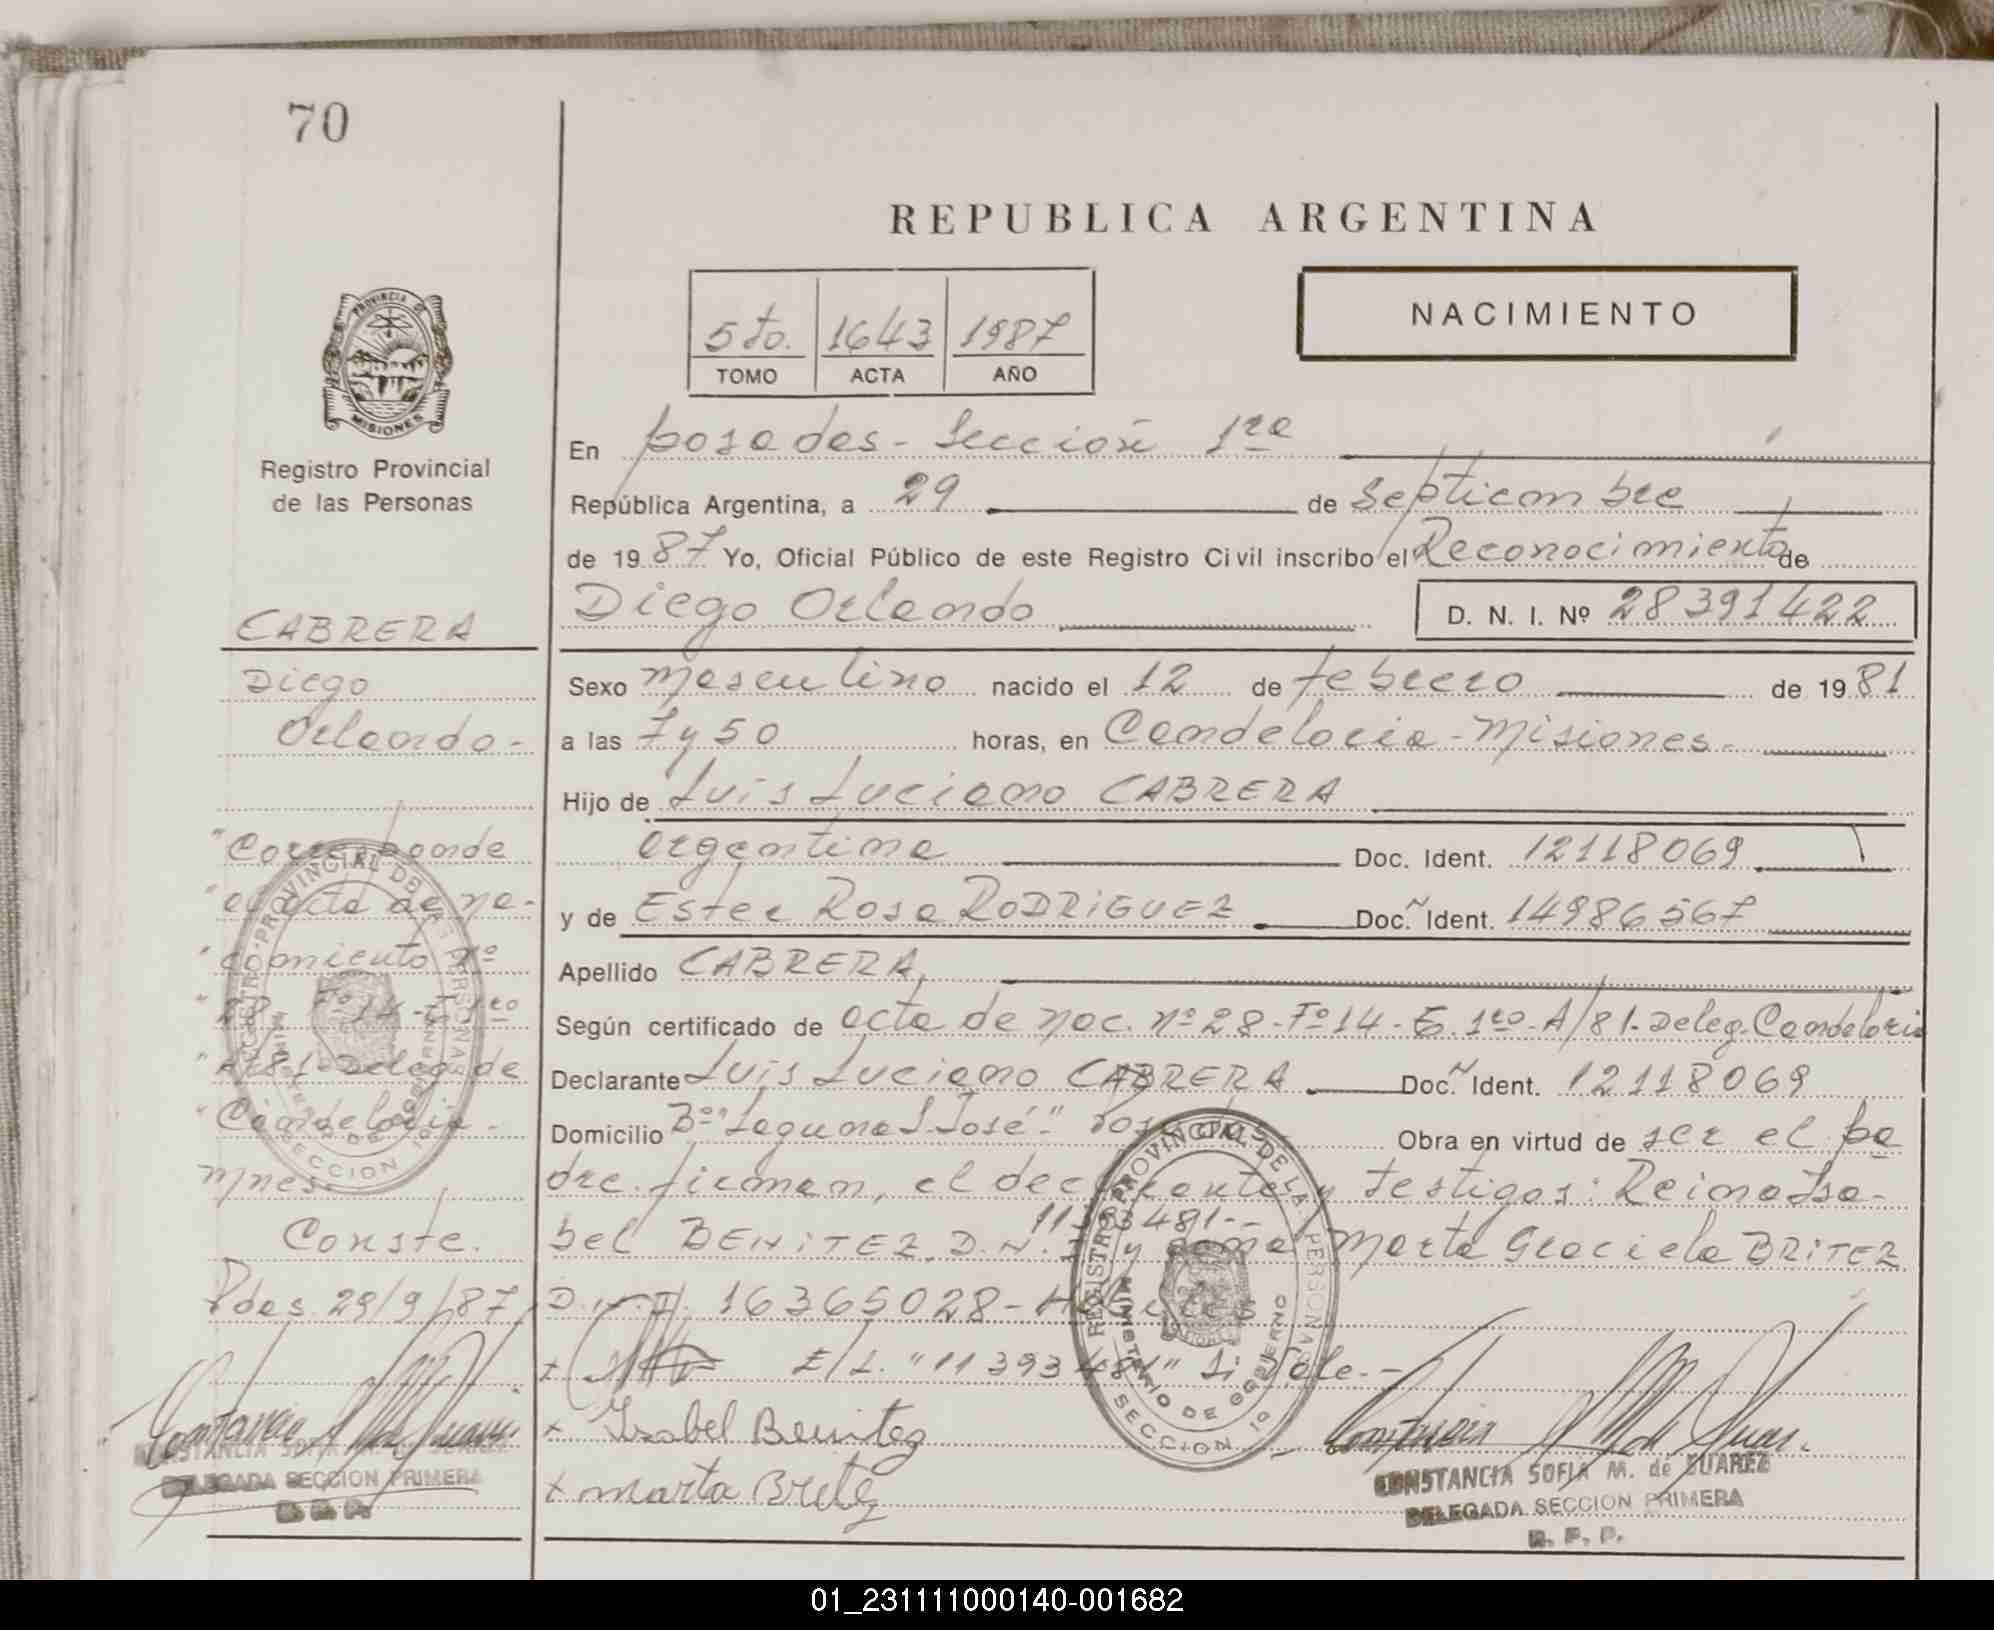 70
REPUBLICA ARGENTINA
NACIMIENTO
5to. 1643 1987
TOMO ACTA AÑO
PROVINCIA DE
MISIONES
Registro Provincial
de las Personas
En posadas - Sección 1ra
República Argentina, a 29 de septiembre
de 1987 Yo, Oficial Público de este Registro Civil inscribo el Reconocimiento de
Diego Orlando D. N. I. Nº 28391422
Sexo masculino nacido el 12 de febrero de 1981
a las 7 y 50 horas, en Candelaria - Misiones.
Hijo de Luis Luciano CABRERA
argentino Doc. Ident. 12118069
y de Ester Rosa RODRIGUEZ Doc. Ident. 14986567
Apellido CABRERA,
Según certificado de acta de nac. nº 28 - Fº 14 - T. 1ro - A/81 - Deleg. Candelaria
Declarante Luis Luciano CABRERA Doc. Ident. 12118069
Domicilio Bº "Laguna S. José". Obra en virtud de ser el pa
dre. firman, el declarante y testigos: Reina Isa-
11393481--
bel BENITEZ, D.N.I. y doña Marta Graciela BRITEZ
D.N.I. 16365028 -
x E/L. "11393481" Si Vale.-
x Isabel Benitez
x Marta Britez
CONSTANCIA SOFIA M. de SUAREZ
DELEGADA SECCION PRIMERA
R. P. P.
REGISTRO PROVINCIAL DE LAS PERSONAS
MINISTERIO DE GOBIERNO
SECCION 1º
CABRERA
Diego
Orlando -
"Corresponde
"al acta de na-
"cimiento nº
"28 Fº 14 - T. 1ro
"A/81 - Deleg. de
"Candelaria -
Mnes.
Conste.
Pdas. 29/9/87
CONSTANCIA SOFIA M. de SUAREZ
DELEGADA SECCION PRIMERA
R. P. P.
REGISTRO PROVINCIAL DE LAS PERSONAS
MINISTERIO DE GOBIERNO
SECCION 1º
01_231111000140-001682